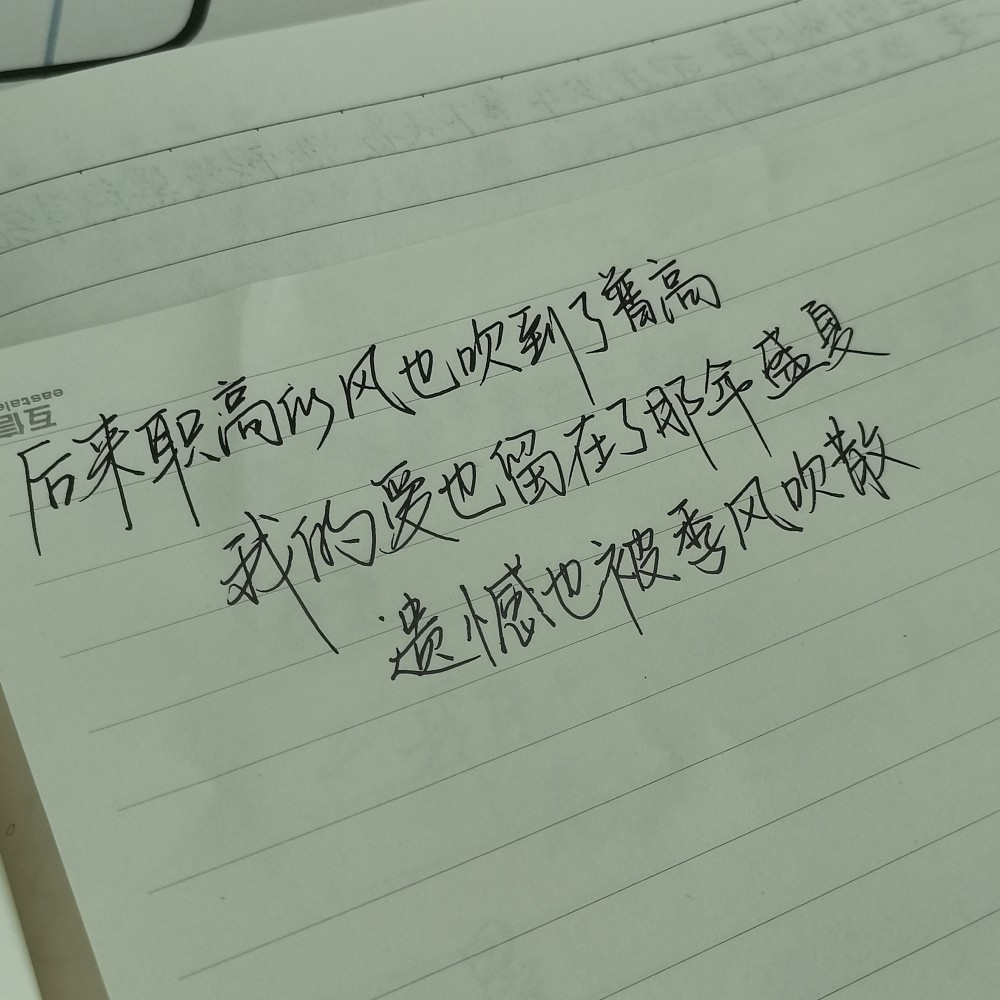 后来职高的风也吹到了普高
我的爱也留在了那年盛夏
遗憾也被季风吹散
互信
eastale